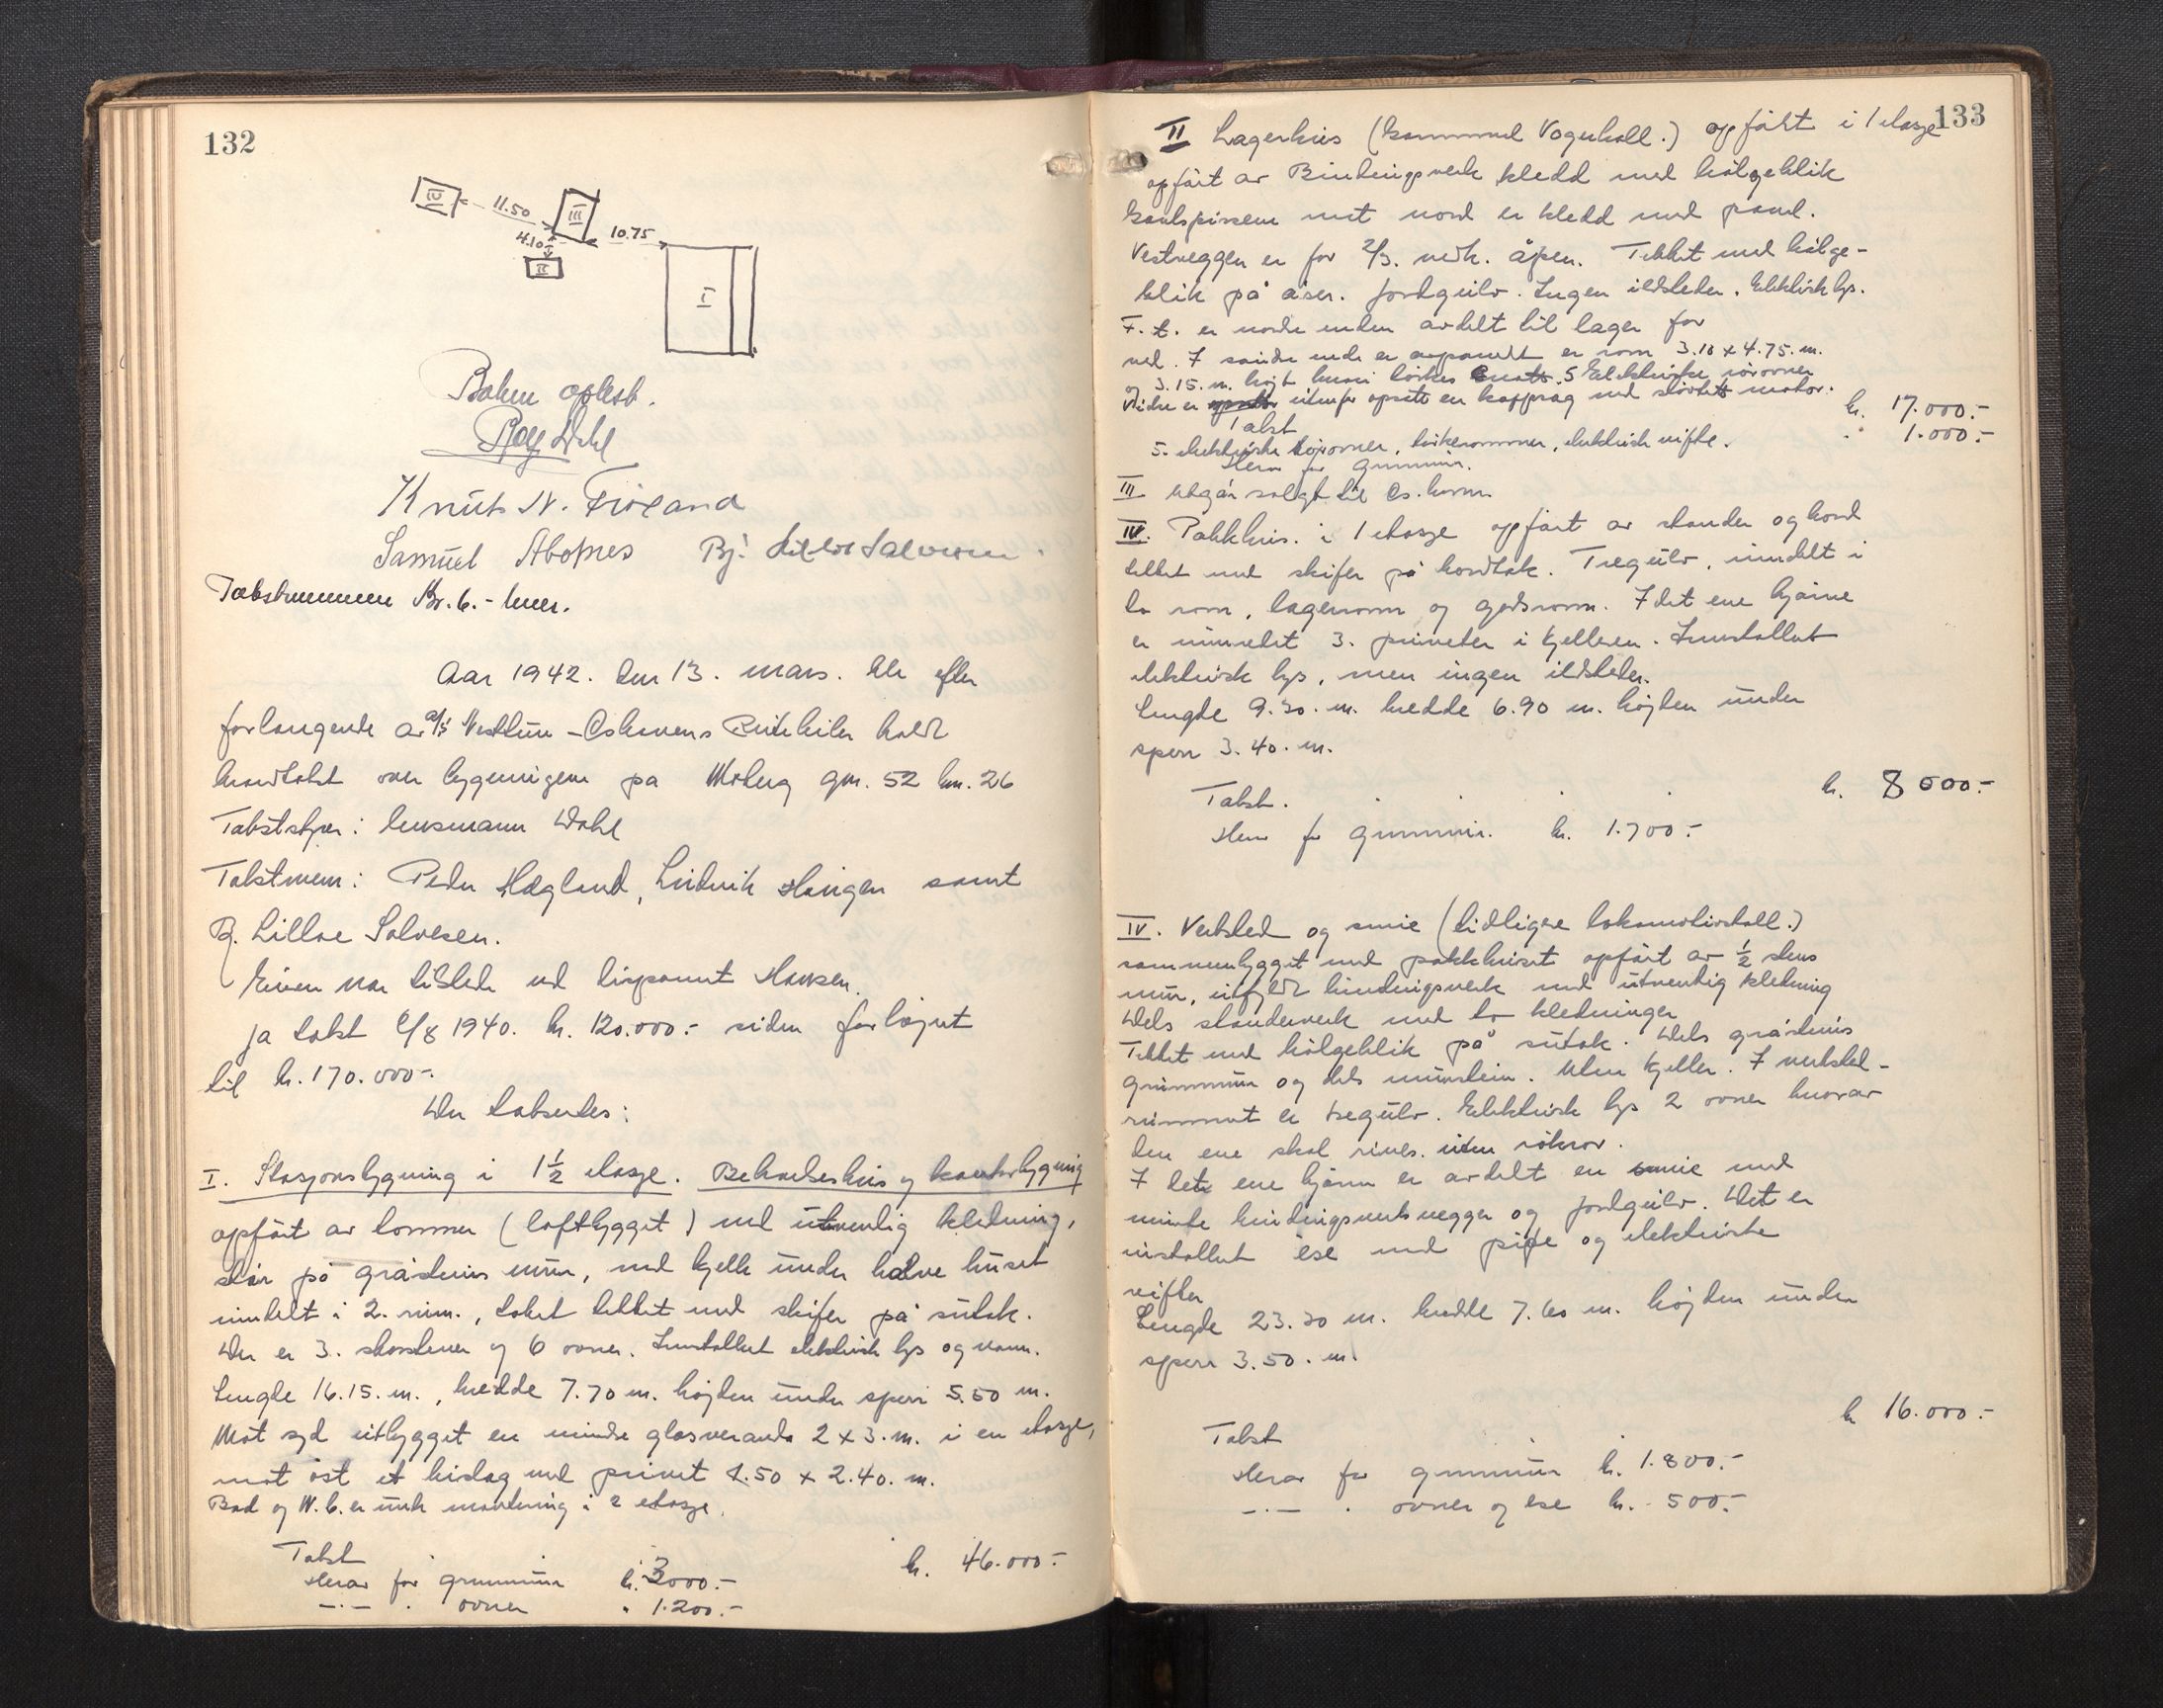 132
IV 11.50 III
4.10 10.75
II
I
Boken oplest.
Roy Dahl
Knut N. Frøland
Samuel Bj. Lilloe Salvesen.
Takstsummen kr. 6.-
Aar 1942. den 13. mars. ble efter
forlangende av a/s Vestlun - Oshavens holdt
brandtakst over bygningene på Moberg gnr. 52 bnr. 26
Takststyrer: lensmann Dahl
Takstmenn: Peder Hægland, Ludvik Haugen samt
B. Lilloe Salvesen.
Eieren var tilstede ved disponent Hansen.
takst 6/8 1940. kr. 120.000.- siden forhøiet
til kr. 170.000.-
Der takseredes:
I. Stasjonsbygning i 1½ etasje. og kontorbygning
opført av tømmer (loftbygget) med utvendig kledning,
står på gråstens mur, med kjeller under halve huset
inndelt i 2. rum., taket tekket med skifer på sutak.
Der er 3. skorstener og 6 ovner. Innstallert elektrisk lys og vann.
Lengde 16.15. m., bredde 7.70 m. højden under sperr 5.50 m.
Mot syd utbygget en mindre glasveranda 2 x 3. m. i en etasje,
mot øst et bislag med privet 1.50 x 2.40. m.
Bad og W.C. er under montering i 2 etasje.
Takst kr. 46.000.-
Herav for grunnmur kr. 3000.-
-.- . ovner " 1.200.-
133
II Lagerhus (kommunal Vognhall.) opført i 1 etasje
opført av Bindingsverk kledd med bølgeblik
mot nord er kledd med panel.
Vestveggen er for 2/3. vedk. åpen. Tekket med bølge-
blik på åser. Jordgulv. Ingen ildsteder. Elektrisk lys.
F. t. er nordre enden avdelt til lager for
ved. I søndre ende er avpanelt et rom 3.10 x 4.75. m.
og 3.15. m. højt hvori tørkes 5 Elektriske rørovner
Videre er utenfor opsatt en med motor.
Takst kr. 17.000.-
5. elektriske rørovner, tørkerommer, elektrisk vifte. " 1.000.-
Herav for grunnmur.
III Utgår solgt til Os. komm.
IV. Pakkhus. i 1 etasje opført av stander og bord
tekket med skifer på bordtak. Tregulv, inndelt i
to rom, lagerrom og godsrom. I det ene hjørne
er innredet 3. priveter i kjelleren. Innstallert
elektrisk lys, men ingen ildsteder.
Lengde 9.30. m. bredde 6.90 m. højden under
sperr 3.40. m.
Takst. kr. 8000.-
Herav for grunnmur. kr. 1.700.-
IV. Verksted og smie (tidligere lokomotivstall.)
sammenbygget med pakkhuset opført av ½ stens
mur, utfyldt bindingsverk med utvendig kledning
Dels standerverk med to kledninger
Tekket med bølgeblik på sutak. Dels gråstens
grunnmur og dels murstein. Uten kjeller. I verksted-
rummet er tregulv. Elektrisk lys 2 ovner hvorav
den ene skal rives. uten røkrør.
I det ene hjørne er avdelt en smie med
murte bindingsverksvegger og jordgulv. Det er
installert ese med pipe og elektriske
vifter
Lengde 23.30 m. bredde 7.60 m. højden under
sperr 3.50. m.
Takst kr 16.000.-
Herav for grunnmur kr. 1.800.-
-.- . ovner og ese kr. 500.-